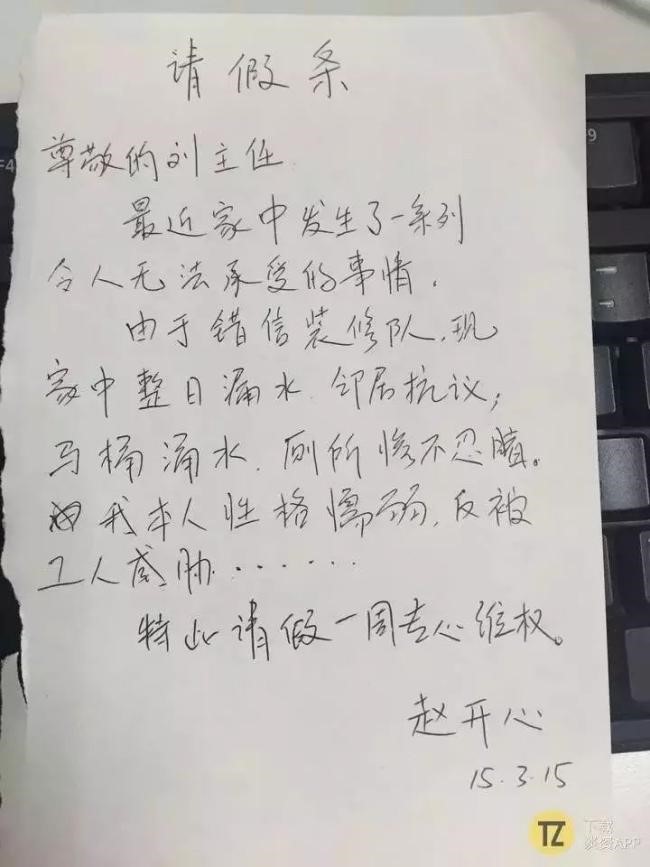 请假条
尊敬的刘主任
最近家中发生了一系列
令人无法承受的事情.
由于错信装修队,现
家中整日漏水.邻居抗议;
马桶涌水.厕所惨不忍睹。
我本人性格懦弱,反被
工人威胁······
特此请假一周专心维权。
赵开心
15.3.15
F4
F9
TZ
下载
APP